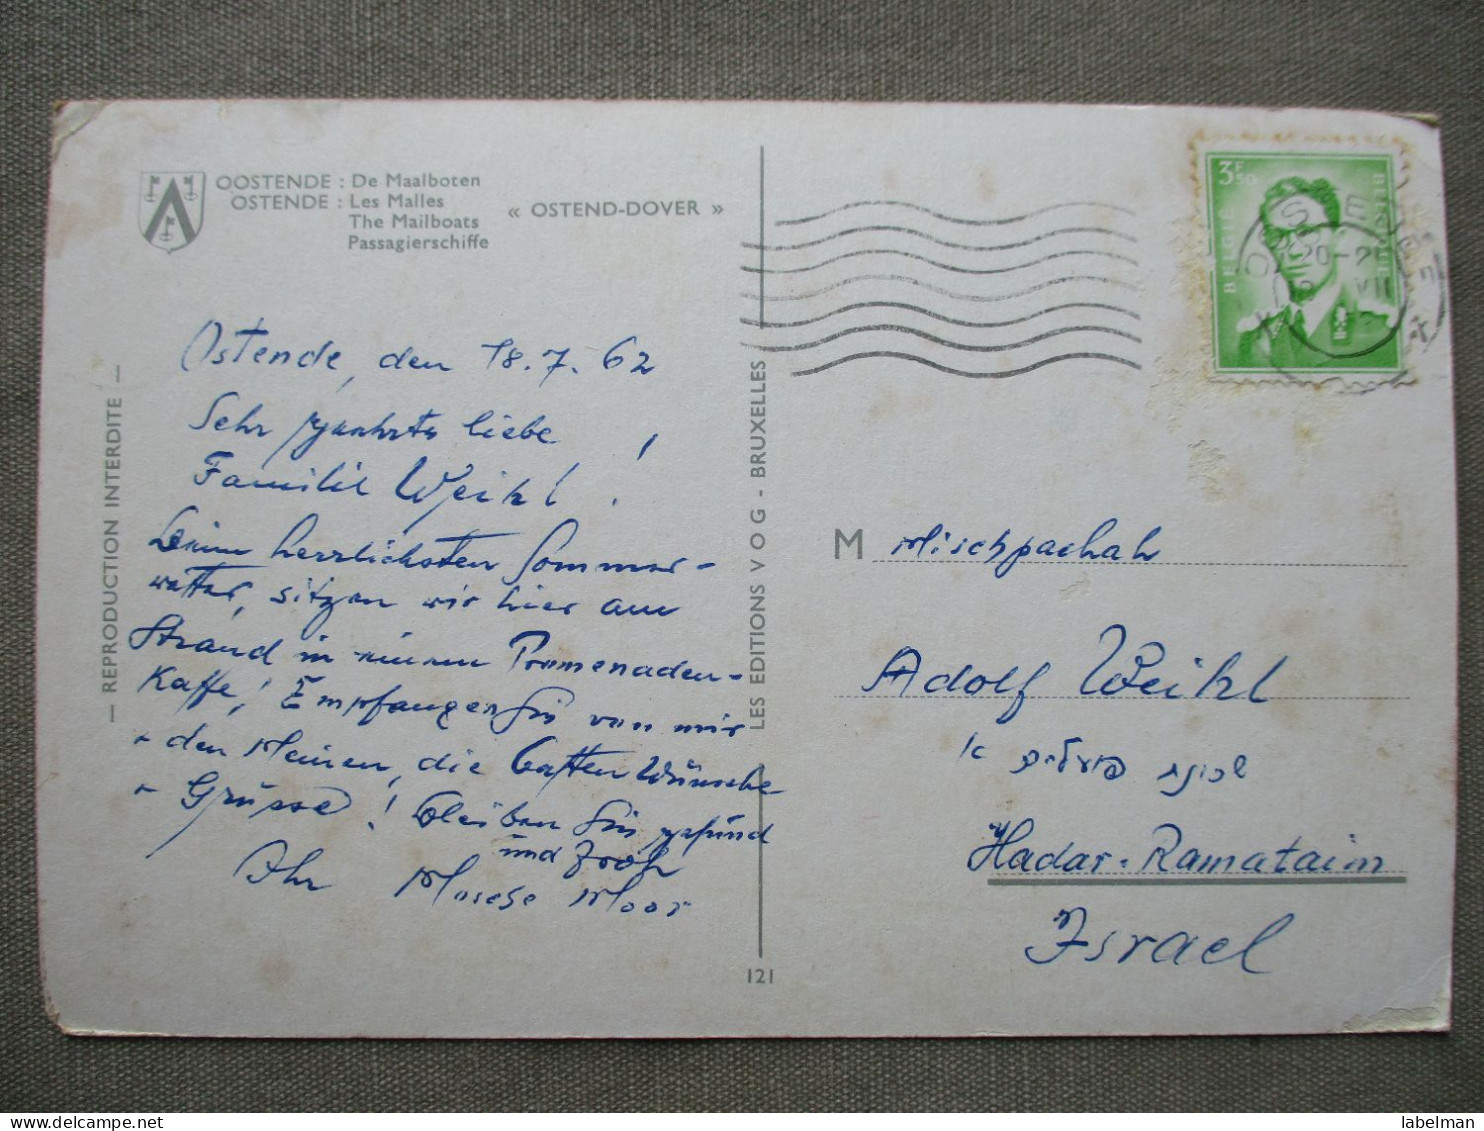 OOSTENDE : De Maalboten
OSTENDE : Les Malles
The Mailboats
Passagierschiffe
« OSTEND-DOVER »
— REPRODUCTION INTERDITE —
Ostende, den 18.7.62
Sehr geehrte liebe
Familie Weikl !
Beim herrlichsten Sommer-
wetter, sitzen wir hier am
Strand in einem Promenaden-
Kaffe! Empfangen Sie von mir
den Meinen, die besten Wünsche
Grüsse! bleiben Sie gesund
und froh
Ihr Mosche Moor
LES EDITIONS V O G - BRUXELLES
121
3F50
BELGIE
BELGIQUE
M Mischpachah
Adolf Weikl
שכונת פועלים א'
Hadar-Ramataim
Israel
labelman
delcampe.net